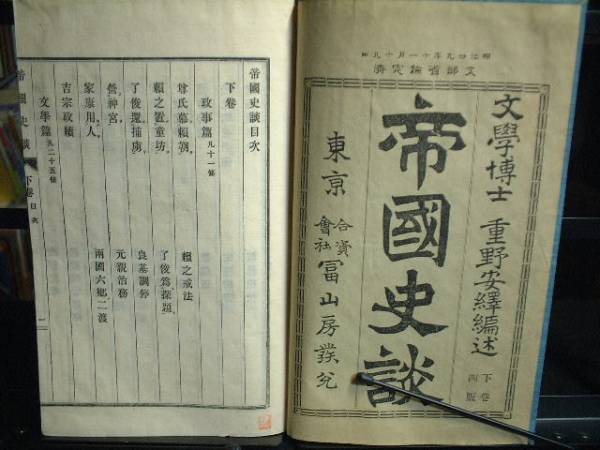 明治四九年十一月十九日
文部省檢定濟
文學博士 重野安繹編述
下卷
四版
帝國史談
東京 合資會社 冨山房發兌
帝國史談目次
下卷
政事篇 凡十一條
尊氏慕賴朝。
賴之戒法
賴之置童坊。
了俊爲探題。
了俊還捕虜。
良基調停
營神宮。
元親治務
家康用人。
兩國六鄕二渡
吉宗政績
文學篇 凡二十五條
帝國史談
下卷目次
一